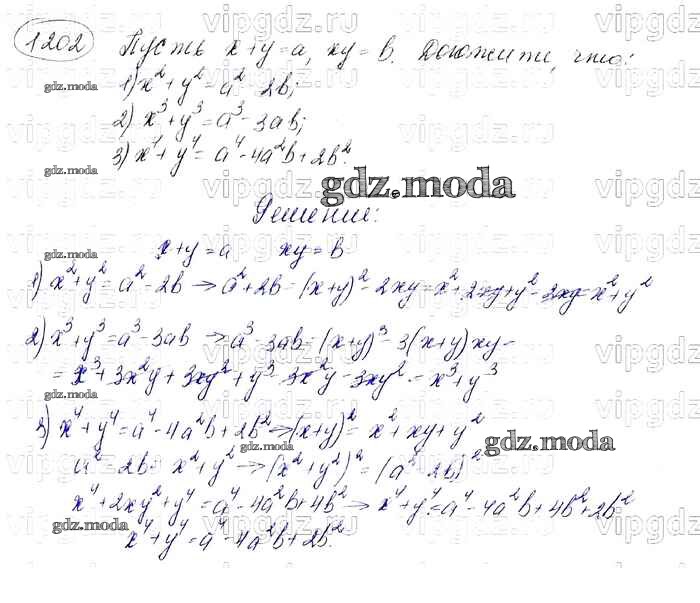 1202 Пусть x+y=a, xy=b. Докажите, что:
1) x²+y²=a²-2b;
2) x³+y³=a³-3ab;
3) x⁴+y⁴=a⁴-4a²b+2b².
Решение:
x+y=a xy=b
1) x²+y²=a²-2b → a²+2b=(x+y)²-2xy=x²+2xy+y²-2xy=x²+y²
2) x³+y³=a³-3ab → a³-3ab=(x+y)³-3(x+y)xy-
=x³+3x²y+3xy²+y³-3x²y-3xy²=x³+y³
3) x⁴+y⁴=a⁴-4a²b+2b² → (x+y)²=x²+xy+y²
a²-2b= x²+y² → (x²+y²)²=(a²-2b)²
x⁴+2xy²+y⁴=a⁴-4a²b+4b² → x⁴+y⁴=a⁴-4a²b+4b²+2b²
x⁴+y⁴=a⁴-4a²b+2b².
gdz.moda
gdz.moda
gdz.moda
gdz.moda
gdz.moda
gdz.moda
gdz.moda
vipgdz.ru